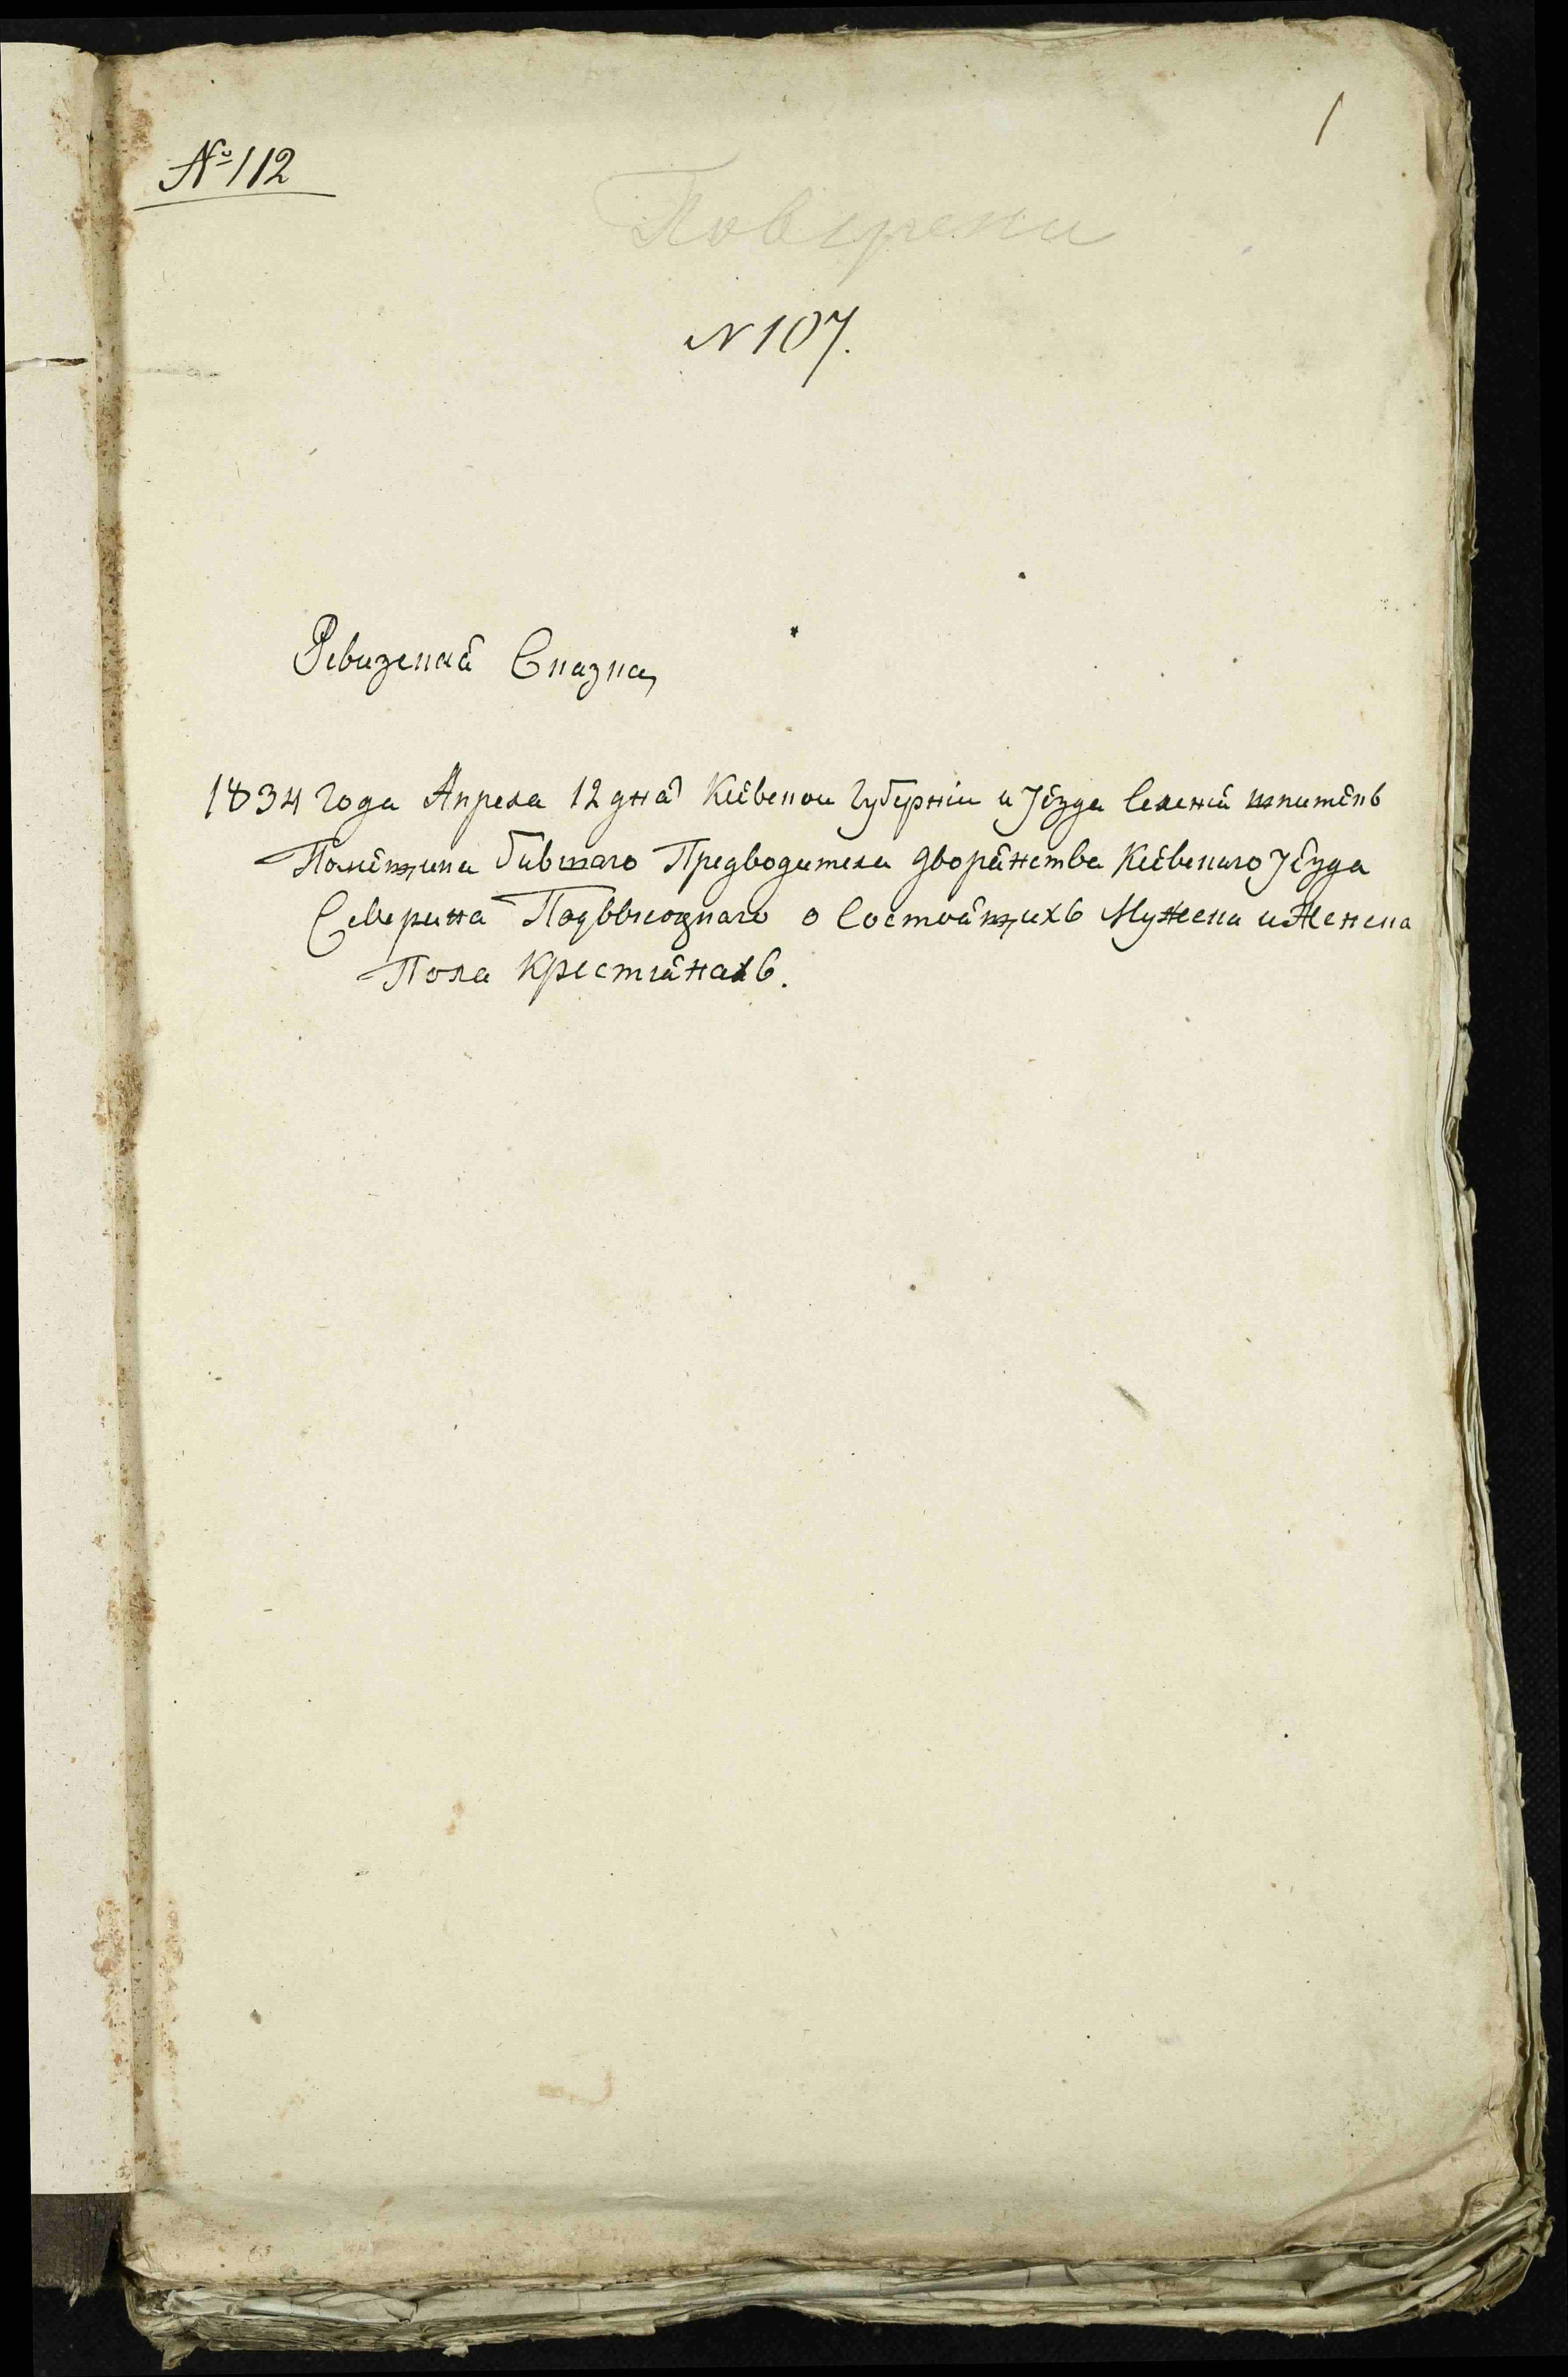 1
№ 112
Поверени
N 107.
Ревизская Сказка,
1834 года Апреля 12 дня Кіевской Губерніи и Уезда Селенія шпитекъ
Помещика бившаго Предводителя дворянства Кіевскаго Уезда
Северина о состоящихъ Мужеска и Женска
Пола Крестіянахъ.